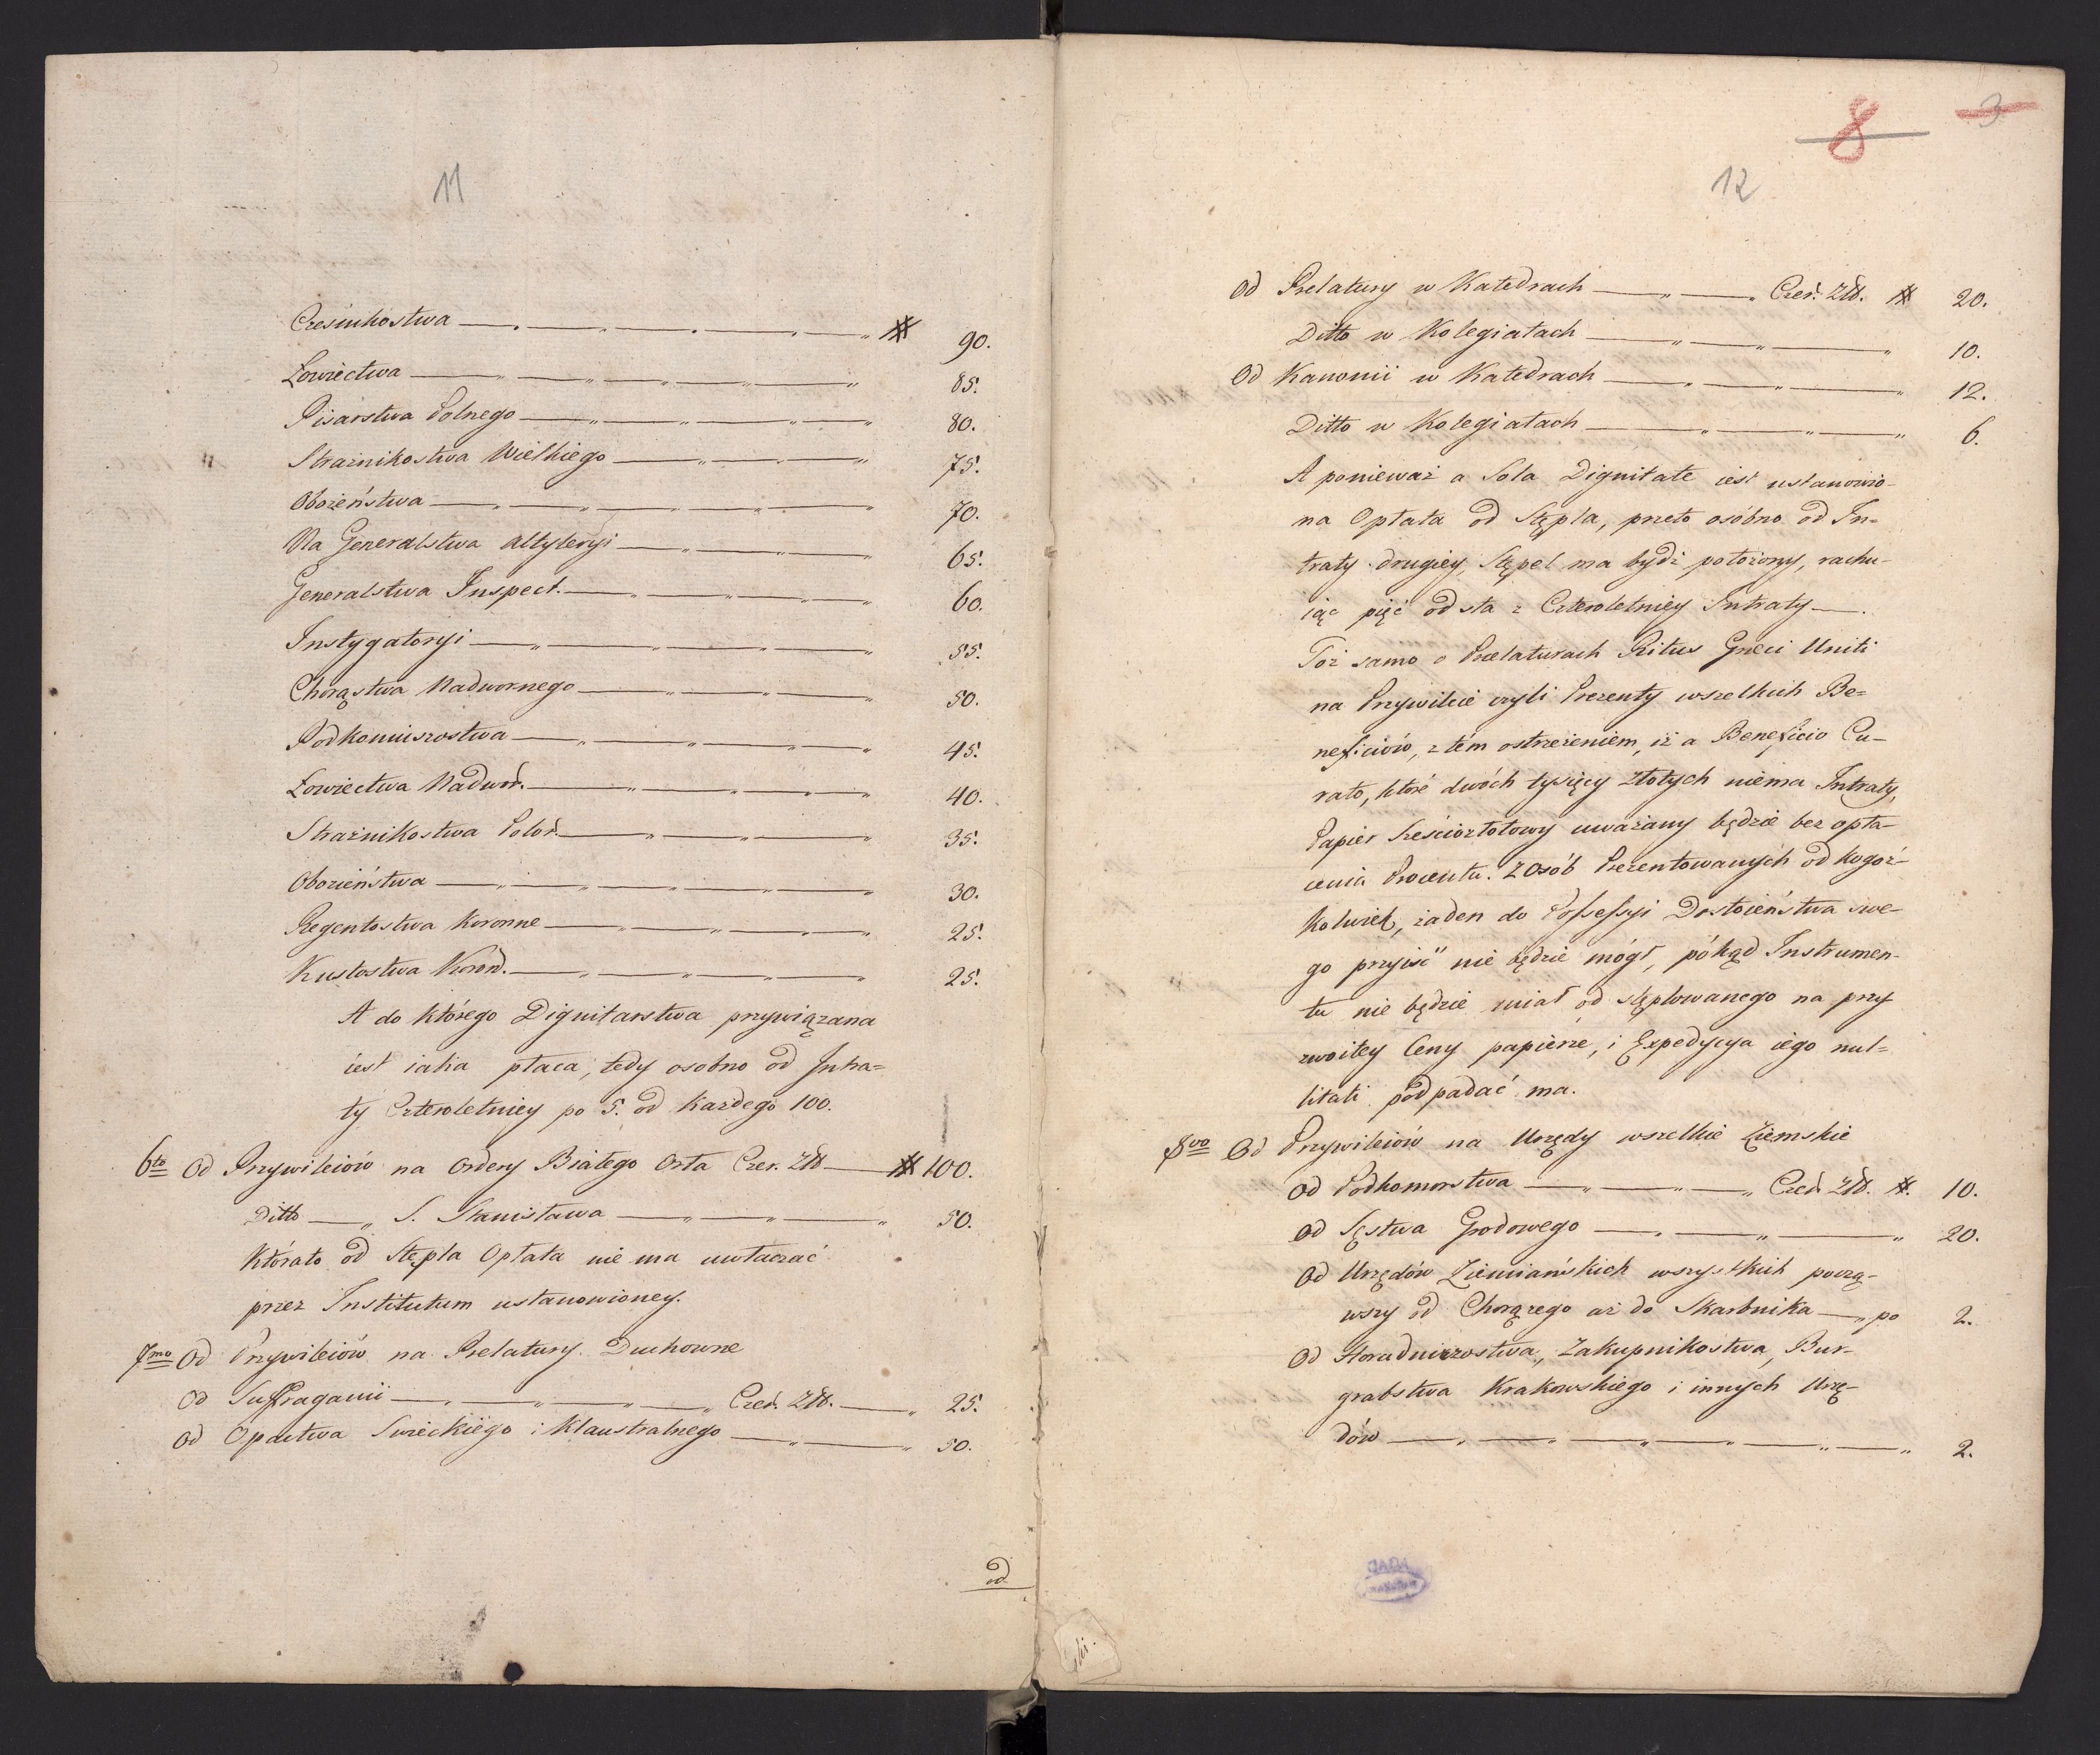 11
Czesnikostwa — „ — „ — „ — „ — „ # 90.
Łowiectwa — „ — „ — „ — „ — „ 85.
Pisarstwa Polnego — „ — „ — „ — „ 80.
Strażnikostwa Wielkiego — „ — „ — „ 75.
Obożeństwa — „ — „ — „ — „ — „ 70.
Na Generalstwa Altyleryi — „ — „ — „ 65.
Generalstwa Inspect. — „ — „ — „ — „ 60.
Instygatoryi — „ — „ — „ — „ 55.
Chorąstwa Nadwornego — „ — „ — „ 50.
Podkoniuszostwa — „ — „ — „ — „ 45.
Łowiectwa Nadwor. — „ — „ — „ — „ 40.
Strażnikostwa Polor. — „ — „ — „ 35.
Obozieństwa — „ — „ — „ — „ — „ 30.
Regentostwa Koronne — „ — „ — „ — „ 25.
Kustostwa Koron. — „ — „ — „ — „ 25.
A do którego Dignitarstwa przywiązana
iest iaka płaca, tedy osobno od Intra=
ty Czteroletniey po 5. od każdego 100.
6to Od Przywileiów na Ordery Białego Orła Czer. Zło — # 100.
Ditto — „ S. Stanisława — „ — „ — „ 50.
Którato od Stępla Opłata nie ma uwłaczać
przez Institutum ustanowioney.
7mo Od Przywileiów na Prelatury Duchowne
Od Suffraganii — „ — „ — „ — „ Czer. Złł. — „ 25.
Od Opactwa Swieckiego i Klaustralnego — „ — „ 50.
od
8 3
12
Od Prelatury w Katedrach — „ — „ Czer. Złł. # 20.
Ditto w Kolegiatach — „ — „ — „ 10.
Od Kanonii w Katedrach — „ — „ — „ 12.
Ditto w Kolegiatach — „ — „ — „ 6.
A ponieważ a Sola Dignitate iest ustanowio-
na Opłata od Stępla, przeto osóbno od In-
traty drugiey Stępel ma bydź położony, rachu-
iąc pięć od sta z Czteroletniey Intraty —.
Toż samo o Prelaturach Ritus Græci Uniti
na Przywileie czyli Prezenty wszelkich Be=
neficiów, z tém ostrzeżeniem, iż a Beneficio Cu-
rato, które dwóch tysięcy złotych niema Intraty,
Papier Sześciozłotowy uważany będzie bez opła-
cenia Procentu. Z Osób Prezentowanych od kogoż-
kolwiek, żaden do Possessyi Dostoieństwa swe-
go przyiść nie będzie mógł, pókąd Instrumen-
tu nie będzie miał od stęplowanego na przy
zwoitey Ceny papierze, i Expedycya iego nul=
litati podpadać ma.
8vo Od Przywileiów na Urzędy wszelkie Ziemskie
Od Podkomorstwa — „ — „ — „ Czer. Złł. # 10.
Od Sęstwa Grodowego — „ — „ — „ 20.
Od Urzędów Ziemiańskich wszystkich począ-
wszy od Chorążego aż do Skarbnika — „ po 2.
Od Horodniczostwa, Zakupnikostwa, Bur-
grabstwa Krakowskiego i innych Urzę-
dów — „ — „ — „ — „ — „ — „ 2.
AGAD